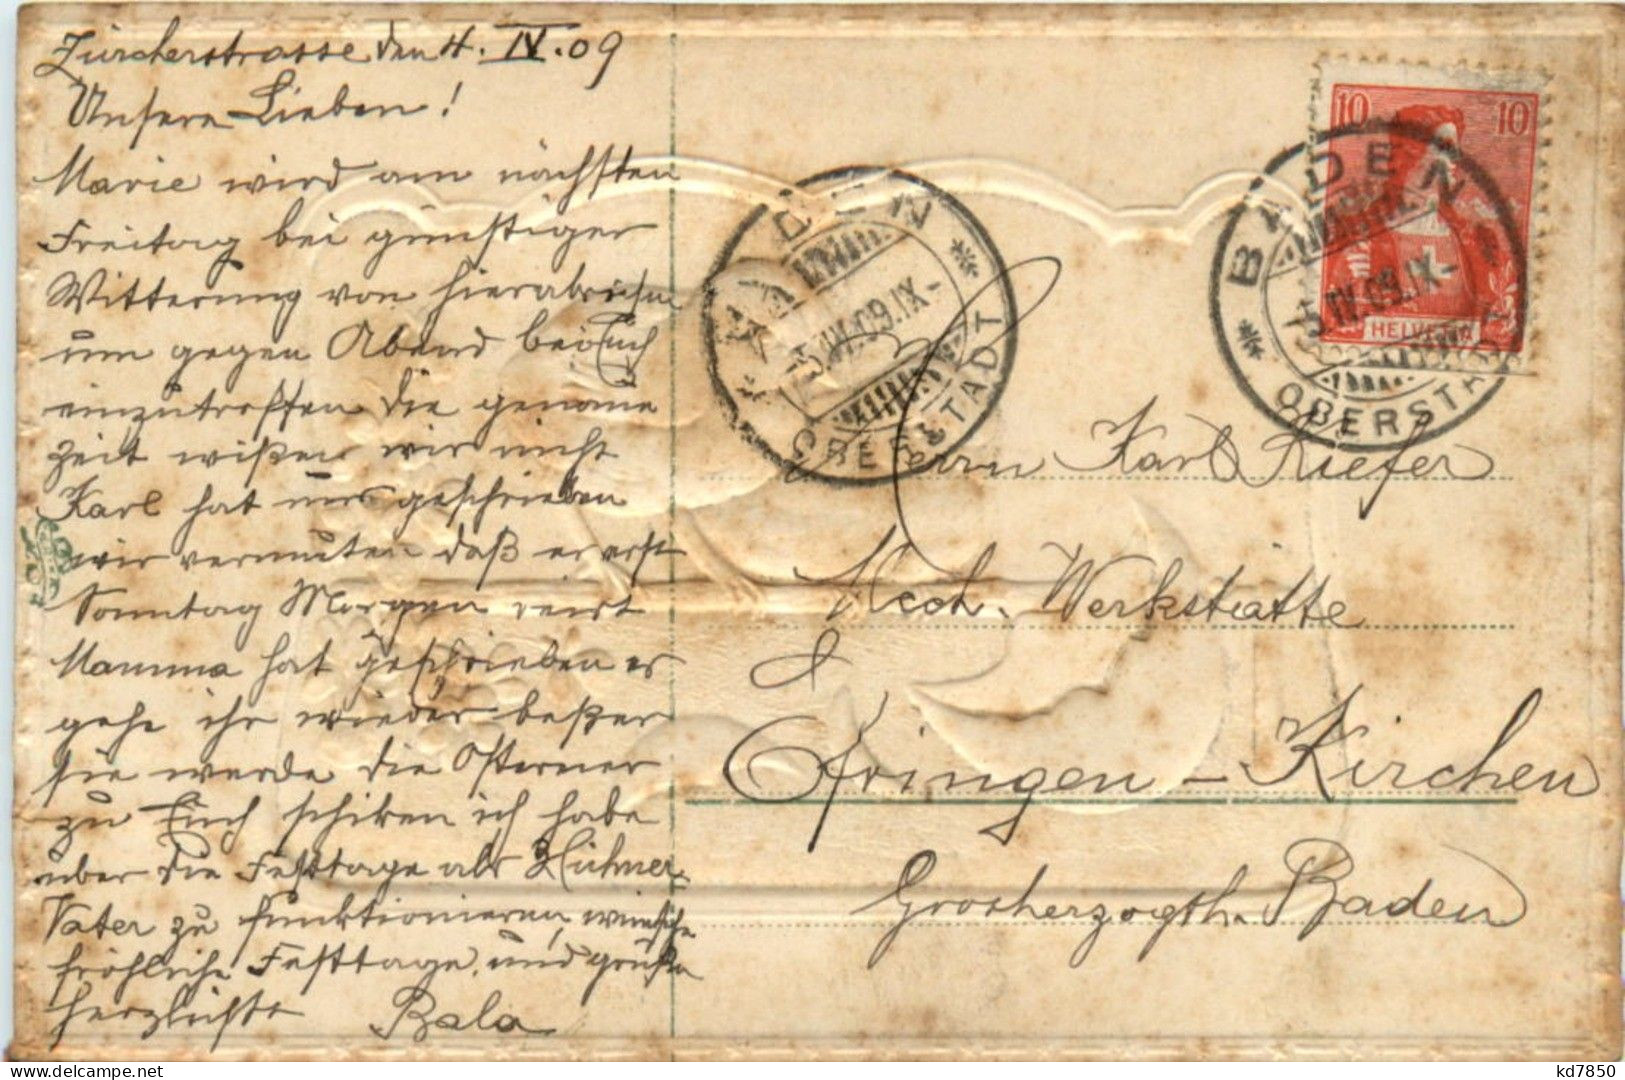 Zürcherstrasse den 4. IV. 09
Unsere Lieben!
Marie wird am nächsten
Freitag bei günstiger
Witterung von hier abreisen
um gegen Abend bei Euch
einzutreffen die genaue
Zeit wißen wir nicht
Karl hat uns geschrieben
wir vermuten daß er erst
Sonntag Morgen reist
Mamma hat geschrieben es
gehe ihr wieder beßer
sie werde die Osterner
zu Euch schiken ich habe
über die Festtage als Hühner-
Vater zu funktionieren, wünsche
fröhliche Festtage, und grüße
herzlichst Bala
BADEN
5.IV.09.IX-
OBERSTADT
10 10
HELVETIA
BADEN
5.IV.09.IX-
OBERSTADT
Herrn Karl Kiefer
Mech. Werkstätte
Efringen-Kirchen
Grosherzogth. Baden
kd7850